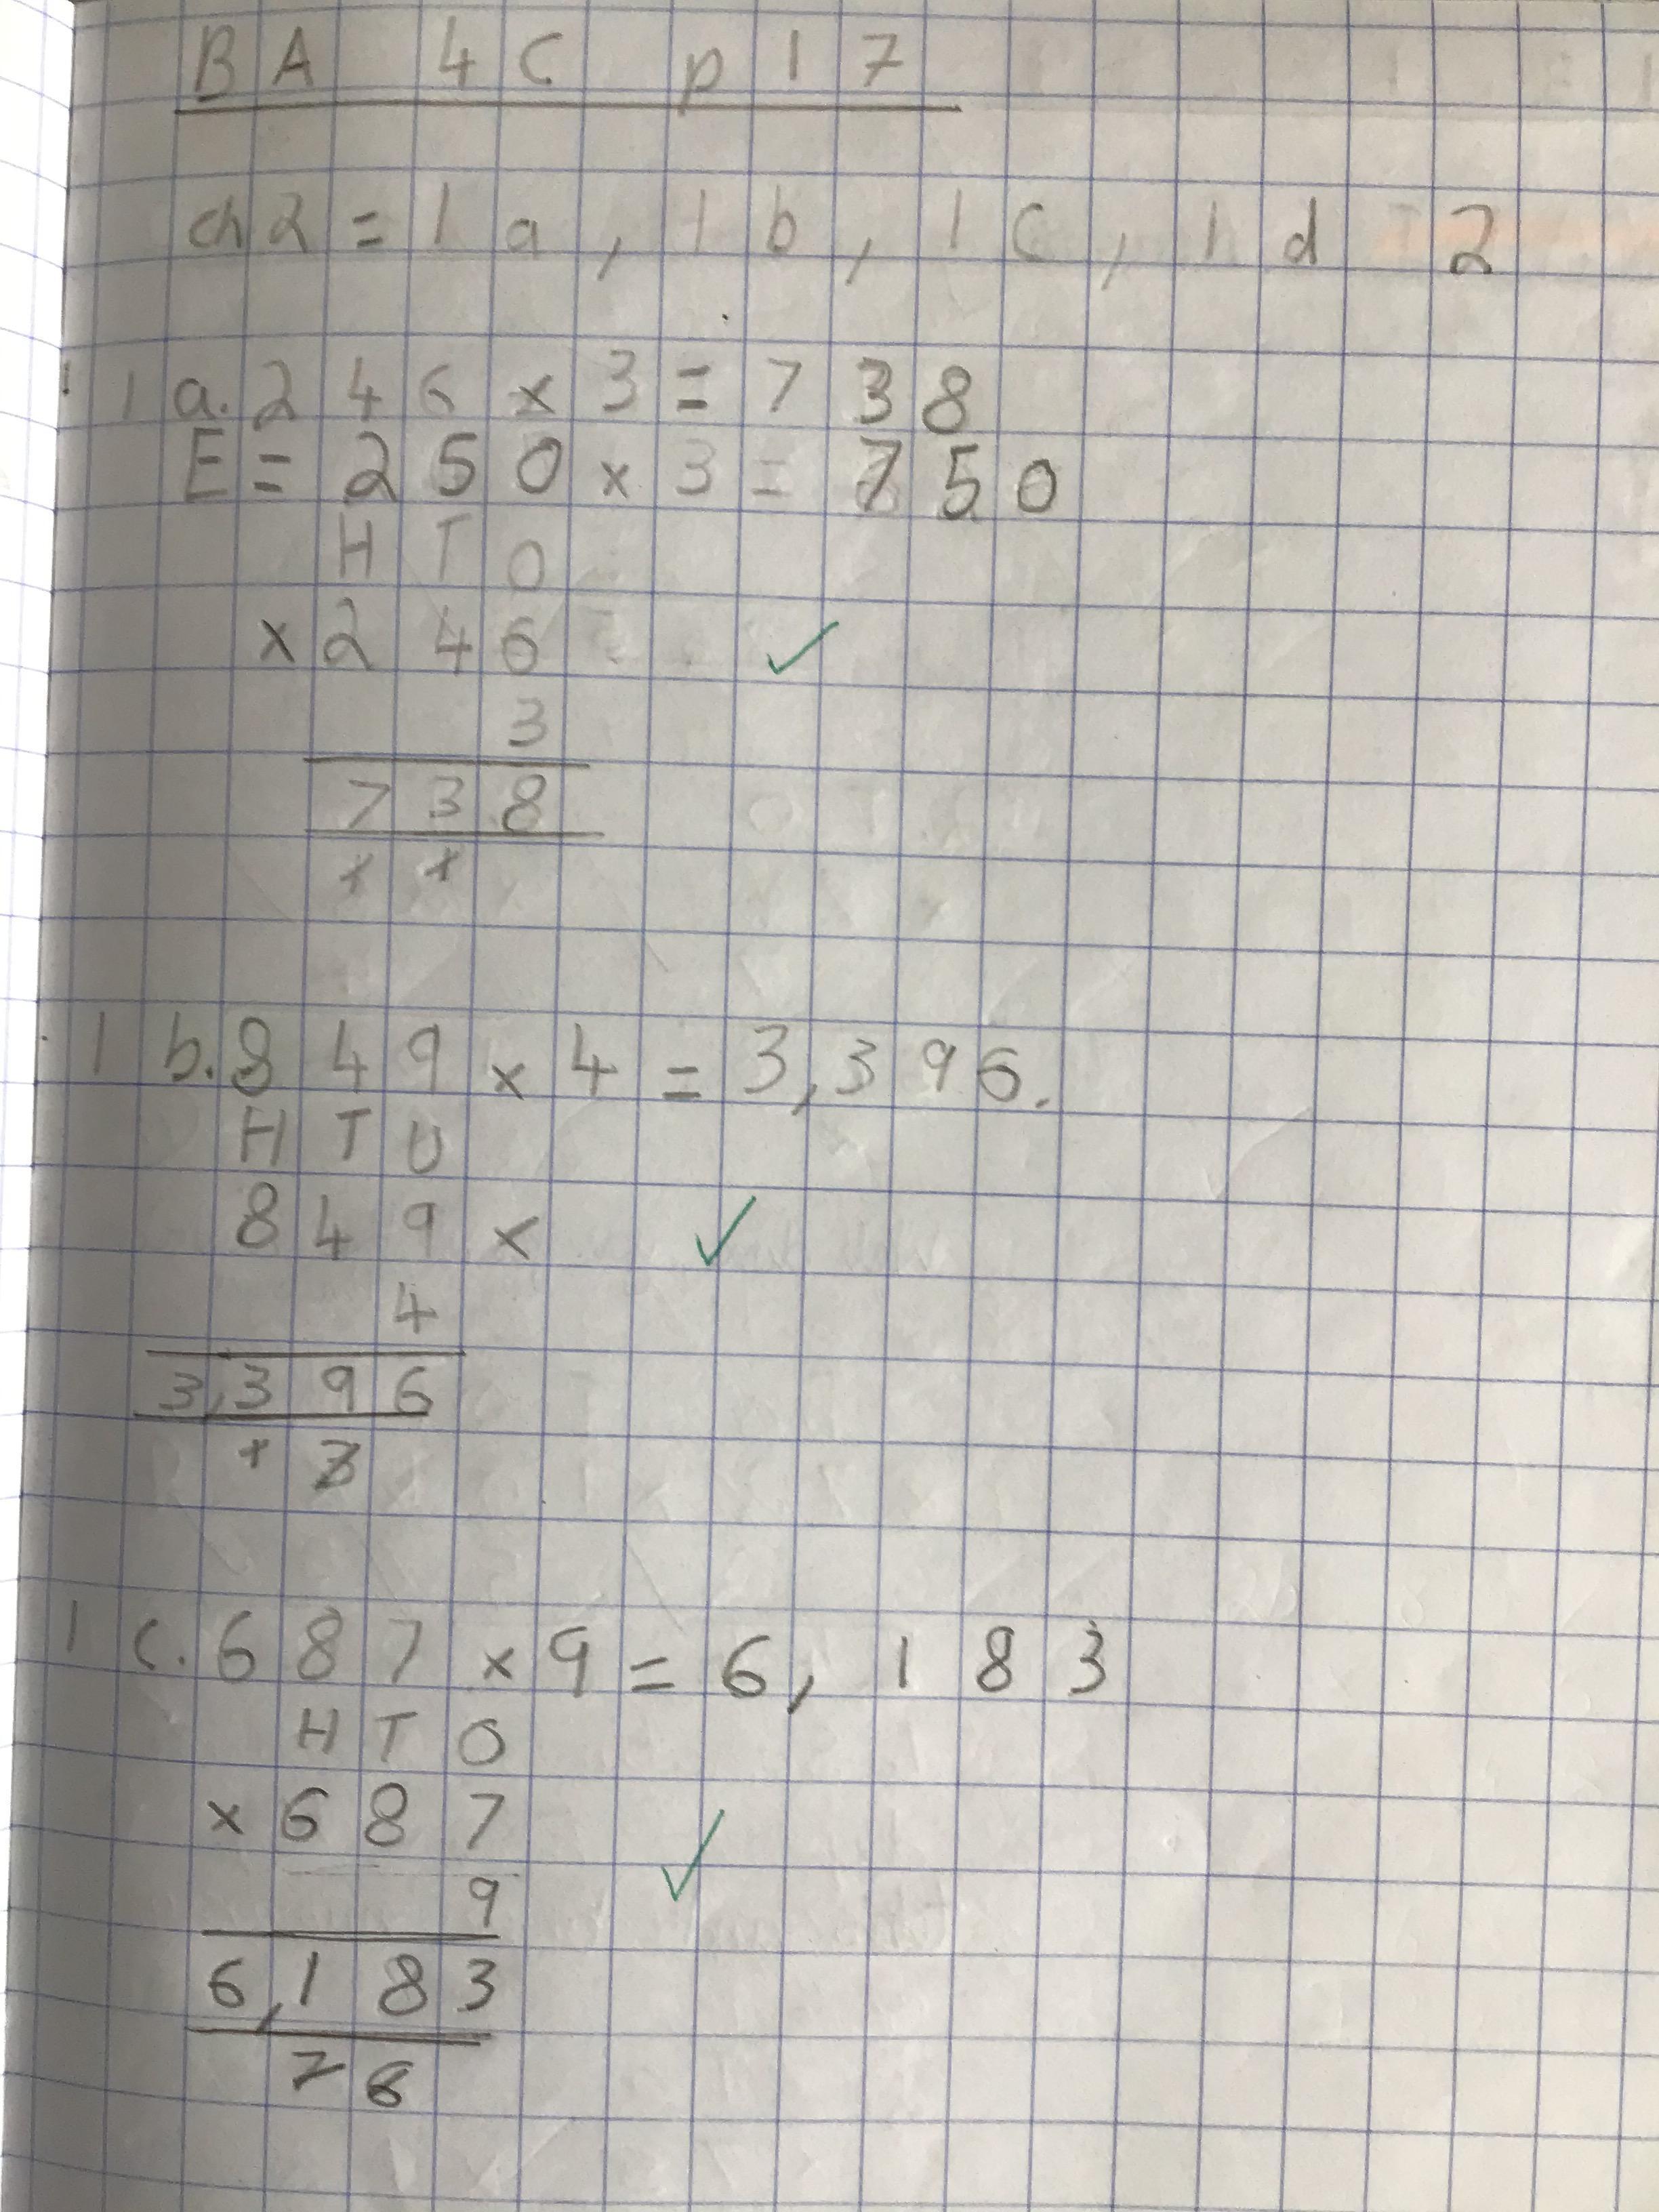 BA 4C p17
ch2 = 1a, 1b, 1c, 1d 2
1a. 246 × 3 = 738
E = 250 × 3 = 750
H T O
× 246
3
738
1b. 849 × 4 = 3,396.
H T U
849 ×
4
3,396
3
1c. 687 × 9 = 6,183
H T O
× 687
9
6,183
7 6